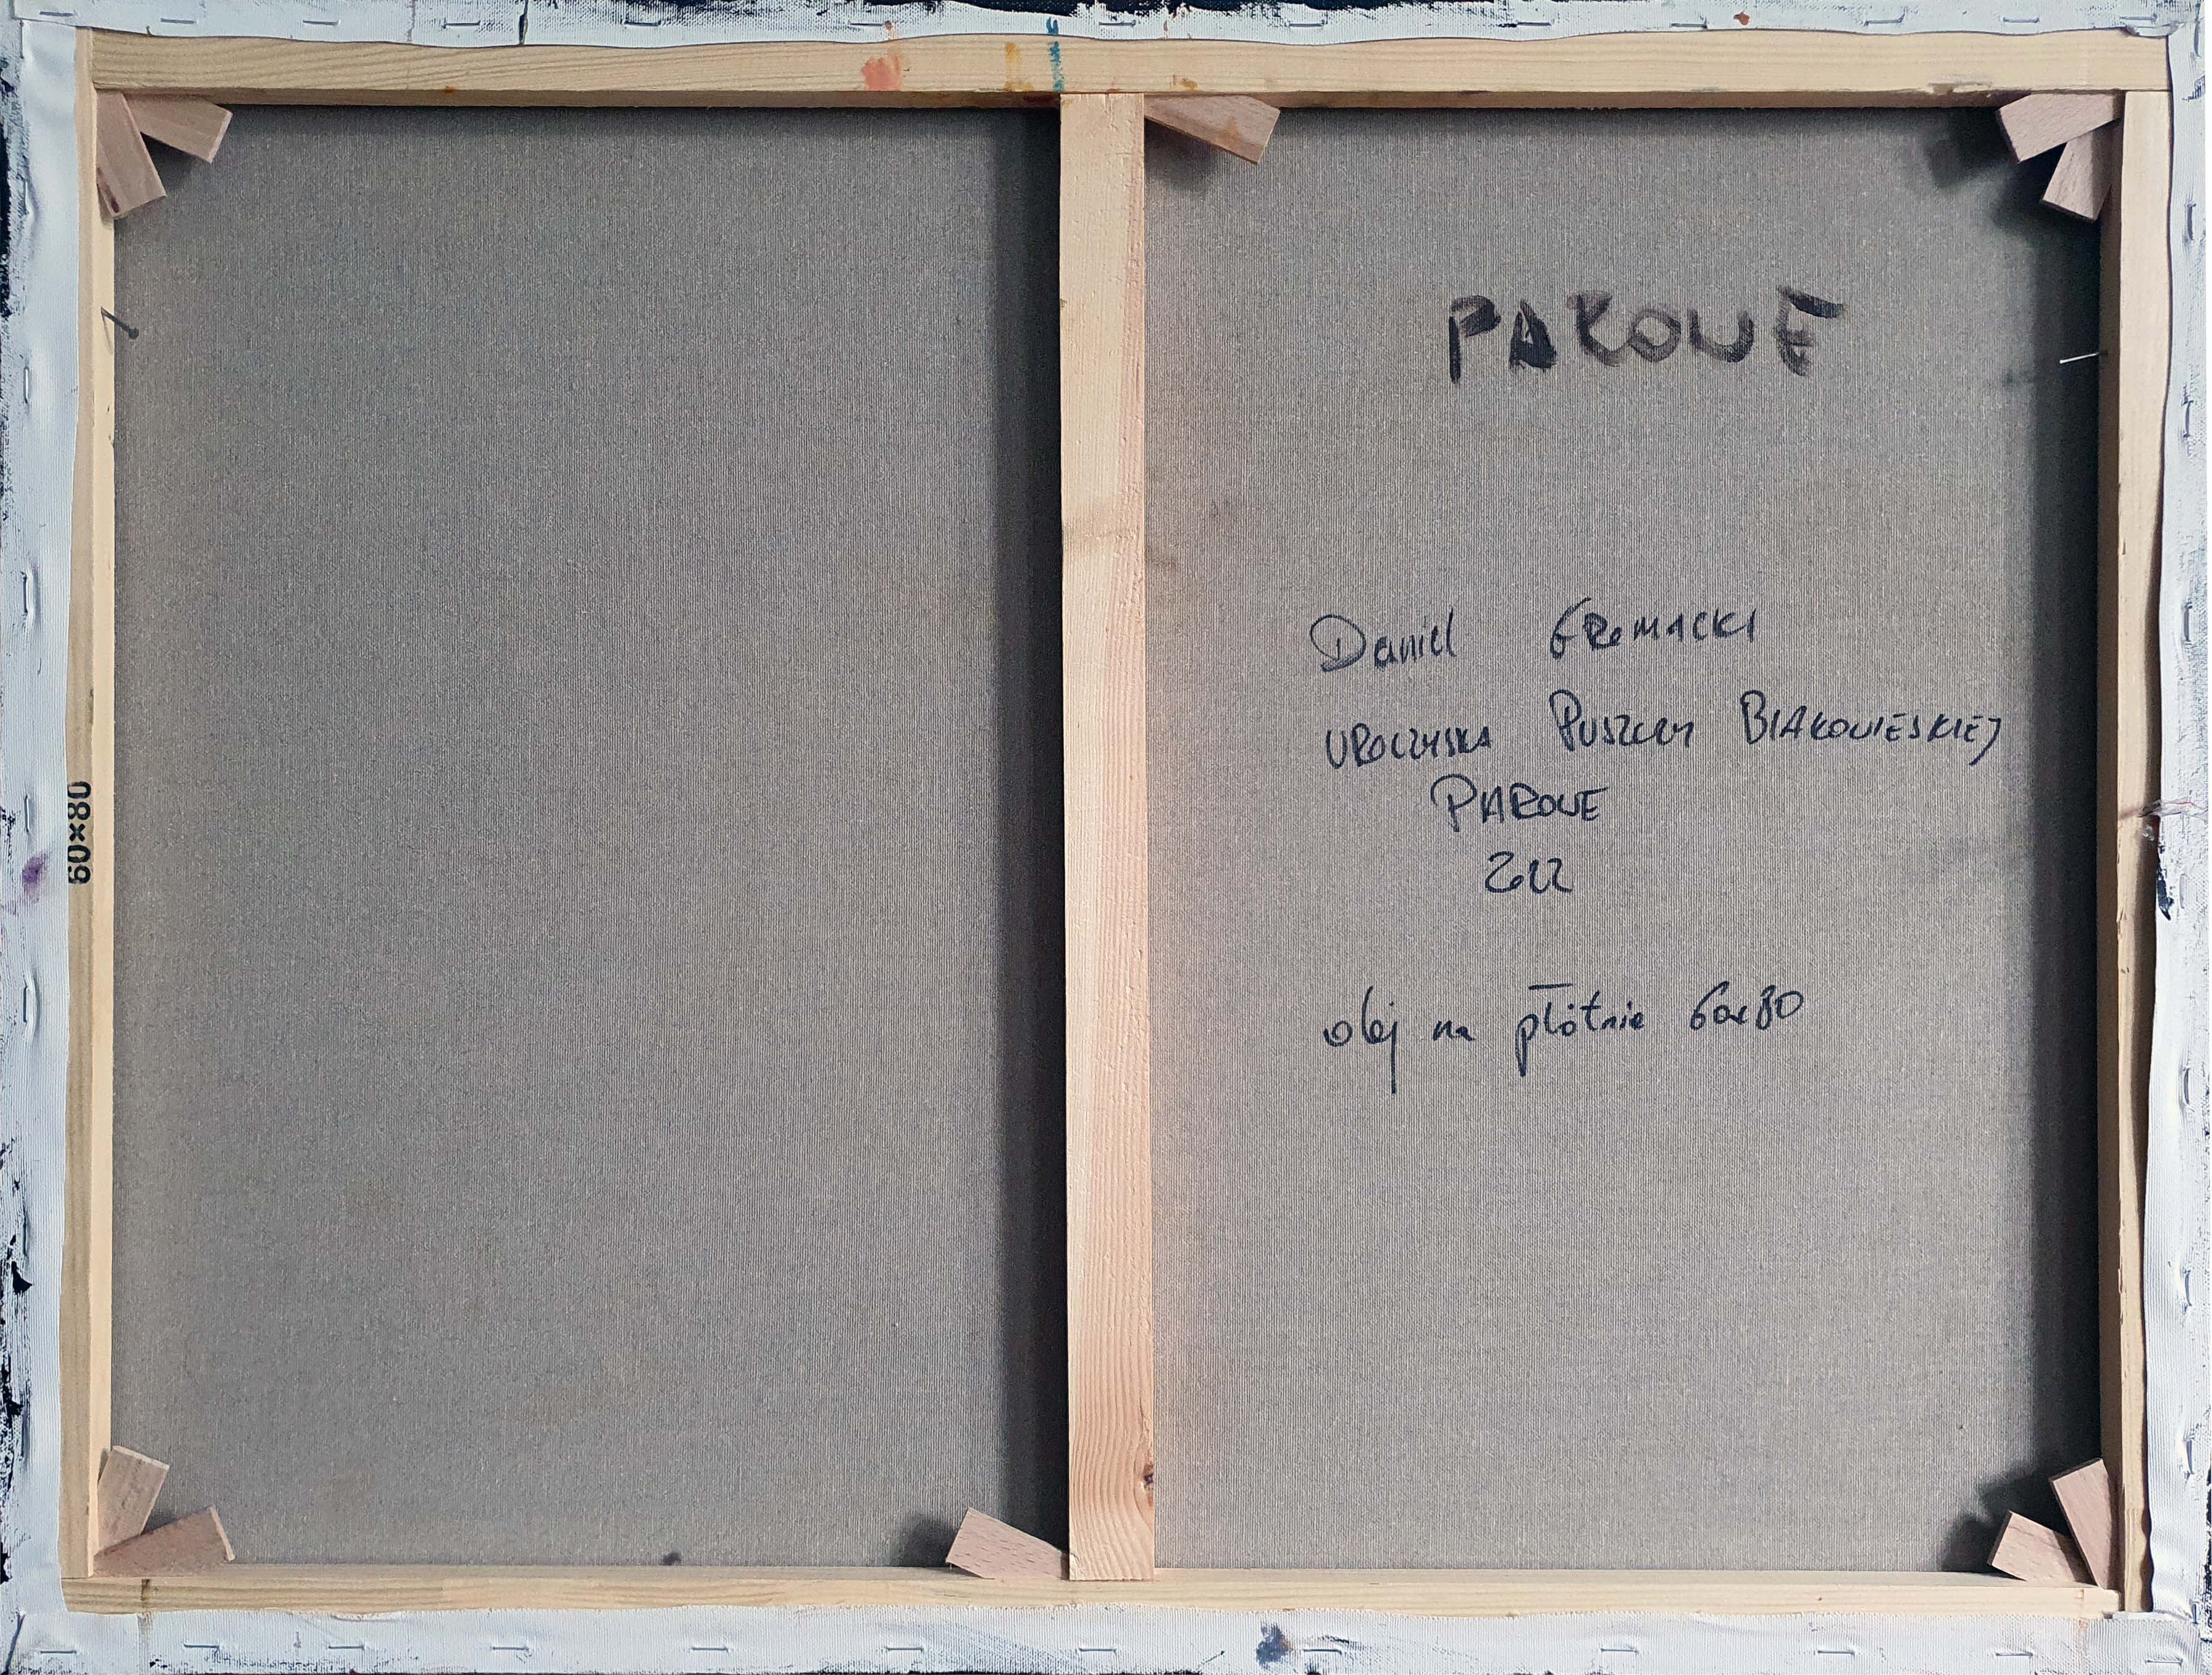 PAROWE
Daniel GROMACKI
UROCZYSKA PUSZCZY BIAŁOWIESKIEJ
PAROWE
2022
olej na płótnie 60x80
60×80